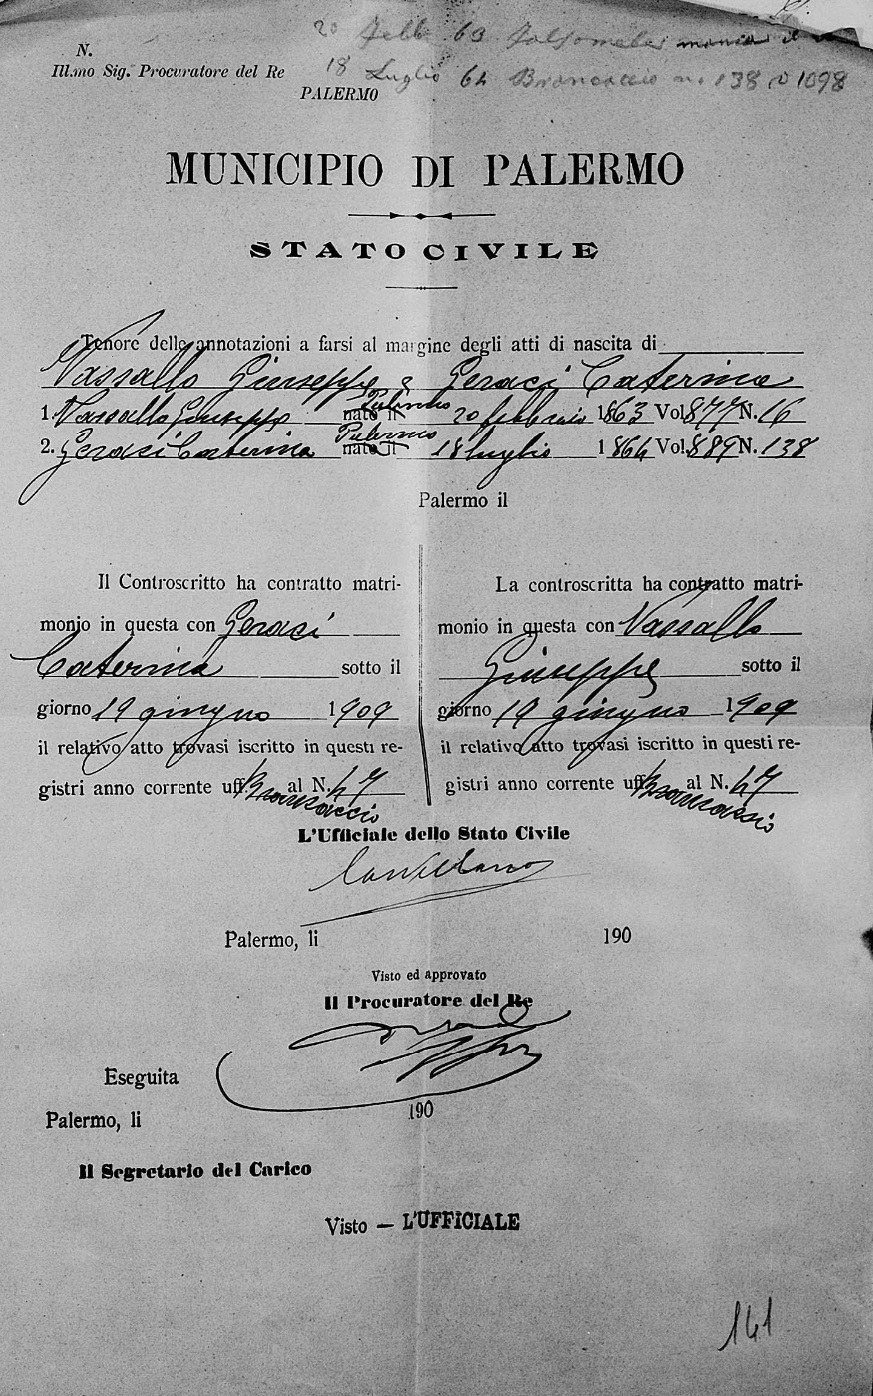 20 Febb 63
N.
Ill.mo Sig. Procuratore del Re
18 Luglio 64 Brancaccio n. 138 v 1098
PALERMO
MUNICIPIO DI PALERMO
STATO CIVILE
Tenore delle annotazioni a farsi al margine degli atti di nascita di
Vassallo Giuseppe e Geraci Caterina
1. Vassallo Giuseppe nato il Palermo 20 febbraio 1863 Vol. 877 N. 16
2. Geraci Caterina nato il Palermo 18 luglio 1864 Vol. 889 N. 138
Palermo il
Il Controscritto ha contratto matri-
monio in questa con Geraci
Caterina sotto il
giorno 19 giugno 1909
il relativo atto trovasi iscritto in questi re-
gistri anno corrente uff. Brancaccio al N. 47
La controscritta ha contratto matri-
monio in questa con Vassallo
Giuseppe sotto il
giorno 19 giugno 1909
il relativo atto trovasi iscritto in questi re-
gistri anno corrente uff. Brancaccio al N. 47
L'Ufficiale dello Stato Civile
Palermo, li 190
Visto ed approvato
Il Procuratore del Re
Eseguita
Palermo, li 190
Il Segretario del Carico
Visto — L'UFFICIALE
141